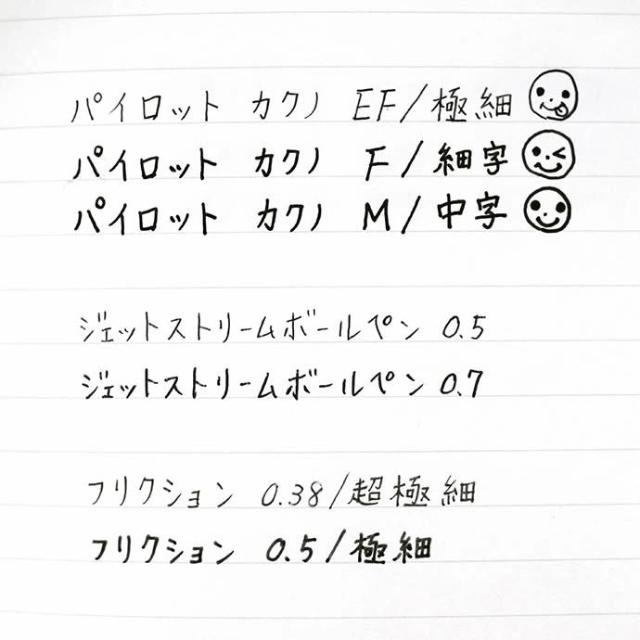 パイロット カクノ EF/極細
パイロット カクノ F/細字
パイロット カクノ M/中字
ジェットストリームボールペン 0.5
ジェットストリームボールペン 0.7
フリクション 0.38/超極細
フリクション 0.5/極細